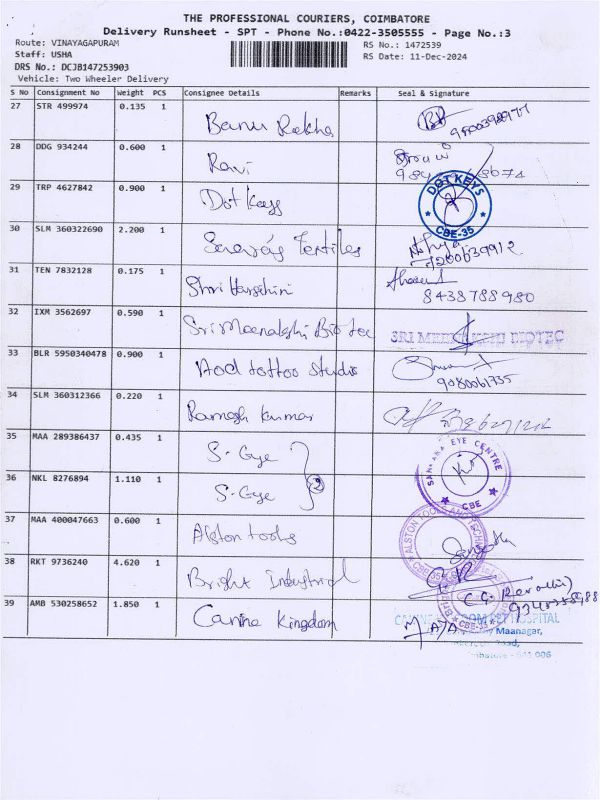 THE PROFESSIONAL COURIERS, COIMBATORE
Delivery Runsheet - SPT - Phone No.:0422-3505555 - Page No.:3
Route: VINAYAGAPURAM
RS No.: 1472539
Staff: USHA
RS Date: 11-Dec-2024
DRS No.: DCJB147253903
Vehicle: Two Wheeler Delivery
S No Consignment No Weight PCS Consignee Details Remarks Seal & Signature
27 STR 499974 0.135 1 Banu Rekha
28 DDG 934244 0.600 1 Ravi
29 TRP 4627842 0.900 1 Dot Keys
DOT KEYS
CBE-35
30 SLM 360322690 2.200 1 Textiles
31 TEN 7832128 0.175 1 Shri Harshini
8438788980
32 IXM 3562697 0.590 1 Sri Meenakshi Bio tec
33 BLR 5950340478 0.900 1 tattoo studio
9080061735
34 SLM 360312366 0.220 1 Ramesh Kumar
35 MAA 289386437 0.435 1 S-Eye
EYE CENTRE
CBE
36 NKL 8276894 1.110 1 S-Eye
2
37 MAA 400047663 0.600 1 Alston tools
ALSTON TOOLS
38 RKT 9736240 4.620 1 Bright Industrial
39 AMB 530258652 1.850 1 Canine Kingdom
CBE-35
HOSPITAL
Maanagar,